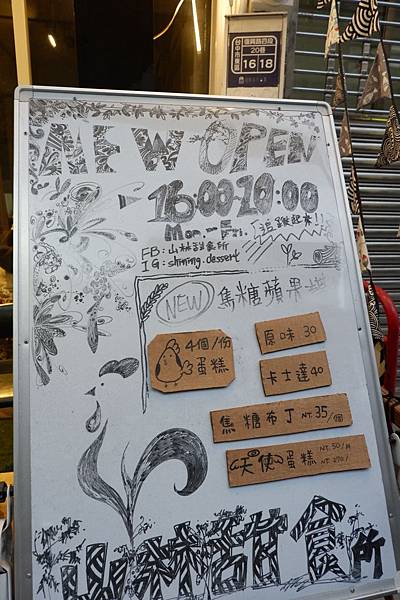 台中市東區
復興路四段
20巷
16 18
MEW OPEN
16:00-20:00
Mon.-Fri.
追蹤起來!!
FB:山林甜食所
IG:shining.dessert
NEW 焦糖蘋果
4個/份
蛋糕
原味 30
卡士達 40
焦糖布丁 NT.35/個
天使蛋糕 NT.50/片
NT.270/
山林甜食所